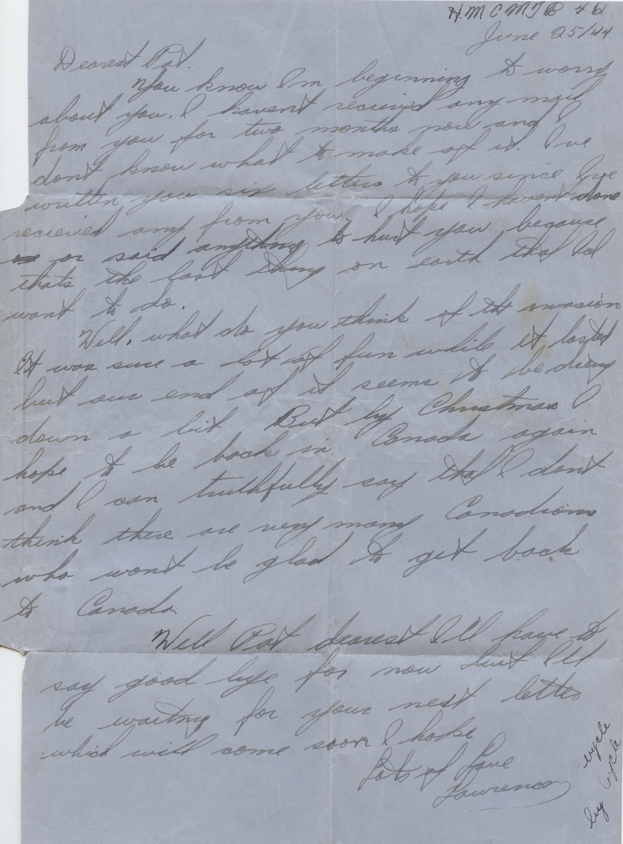 H.M.C. M.T.B. 461
June 25/44
Dearest Pat.
You know I'm beginning to worry
about you. I haven't recieved any mail
from you for two months now and
don't know what to make of it. I've
written you six letters to you since I've
recieved any from you. I hope I havent done
or said anything to hurt you because
thats the last thing on earth that I'd
want to do.
Well, what do you think of the invasion
It was sure a lot of fun while it lasted
but our end of it seems to be dieing
down a bit. But by Christmas I
hope to be back in Canada again
and I can truthfully say that I dont
think there are very many Canadians
who won't be glad to get back
to Canada.
Well Pat dearest I'll have to
say good bye for now but I'll
be waiting for your next letter
which will come soon I hope
Lots of Love
Lawrence
bycycle